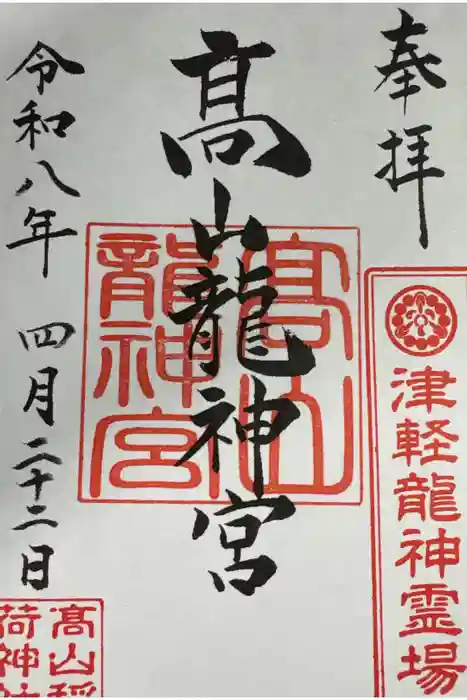 奉拝
津軽龍神霊場
髙山龍神宮
髙山
龍神宮
令和八年 四月二十二日
髙山稲
荷神社